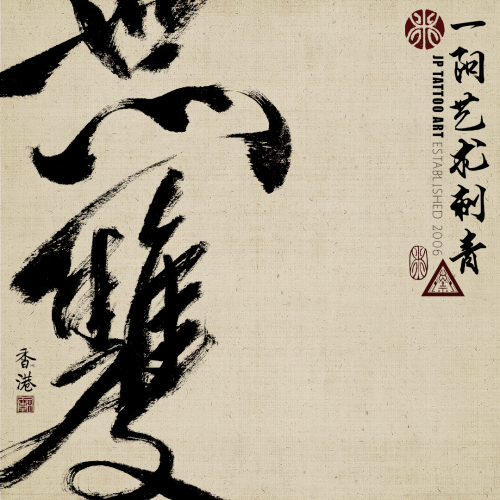 一阳艺术刺青
JP TATTOO ART ESTABLISHED 2006
無雙
香港